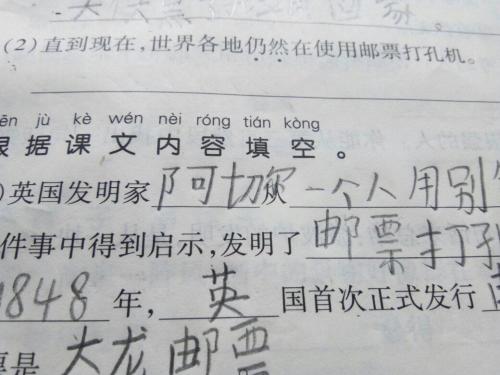 (2)直到现在,世界各地仍然在使用邮票打孔机。
ēn jù kè wén nèi róng tián kòng
根据课文内容填空。
)英国发明家阿切尔一个人用别
件事中得到启示,发明了邮票打孔
1848年,英国首次正式发行
票是大龙邮票